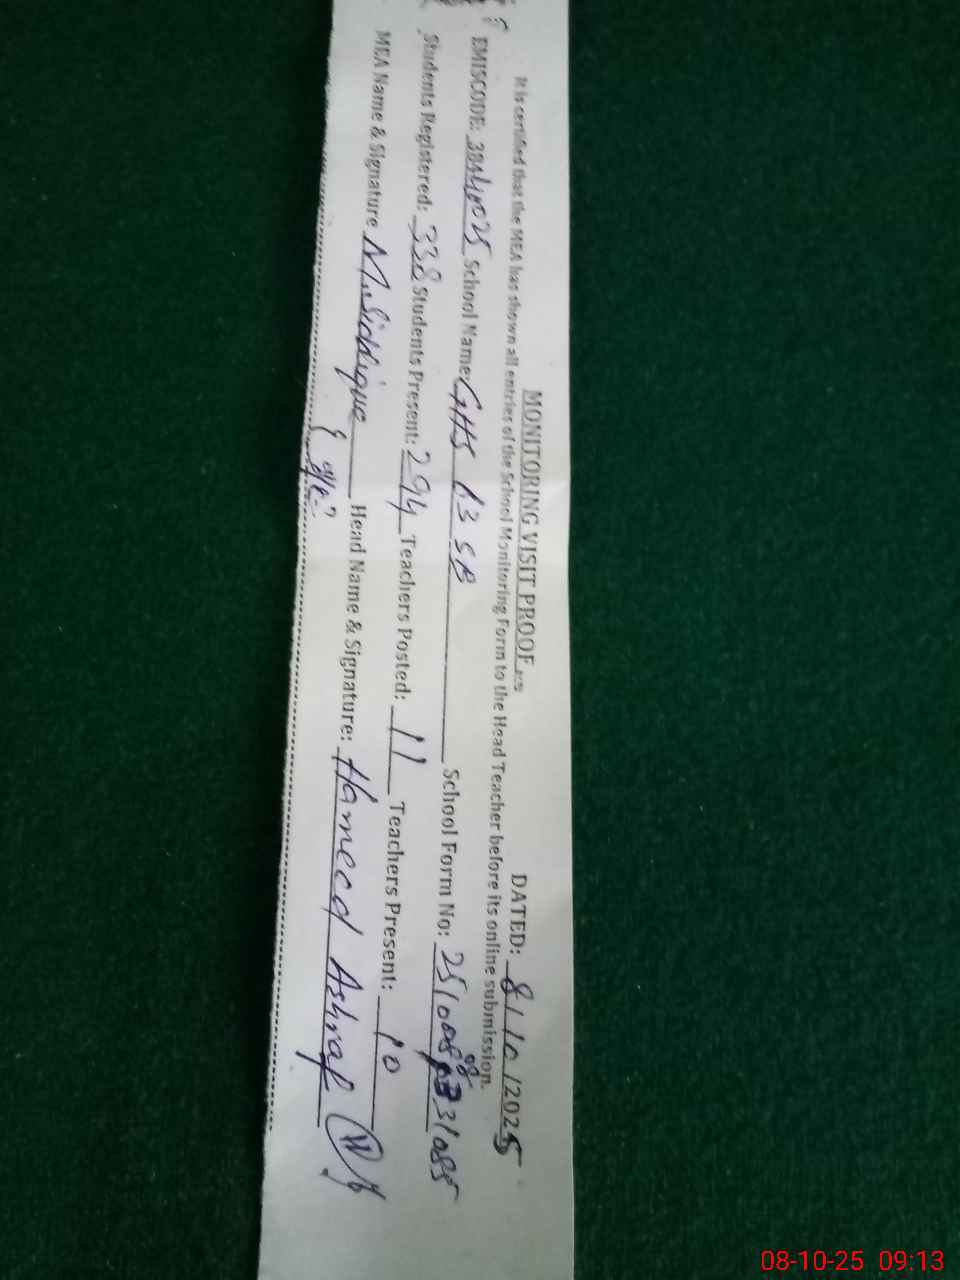 MONITORING VISIT PROOF
DATED: 8/10/2025
It is certified that the MEA has shown all entries of the School Monitoring Form to the Head Teacher before its online submission.
EMISCODE: School Name: GHS 13 SB School Form No:
Students Registered: 338 Students Present: 294 Teachers Posted: 11 Teachers Present: 10
MEA Name & Signature M. Siddique Head Name & Signature: Hameed Ashraf
08-10-25 09:13